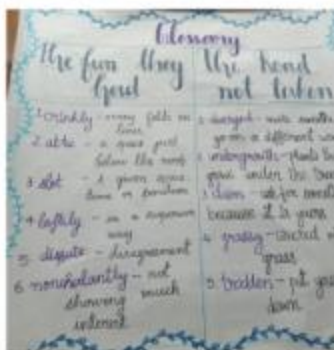 Glossary
The fun they
had
1. crinkly - many folds or
lines
2. attic - a space just
below the roof
3. slot - a given space,
time or position
4. loftily - in a superior
way
5. dispute - disagreement
6. nonchalantly - not
showing much
interest
The Road
not taken
1. diverged -
grow a different
2. undergrowth - plants
grow under the
3. claim - ask for
because it is yours
4. grassy - covered
grass
5. trodden - put your
down